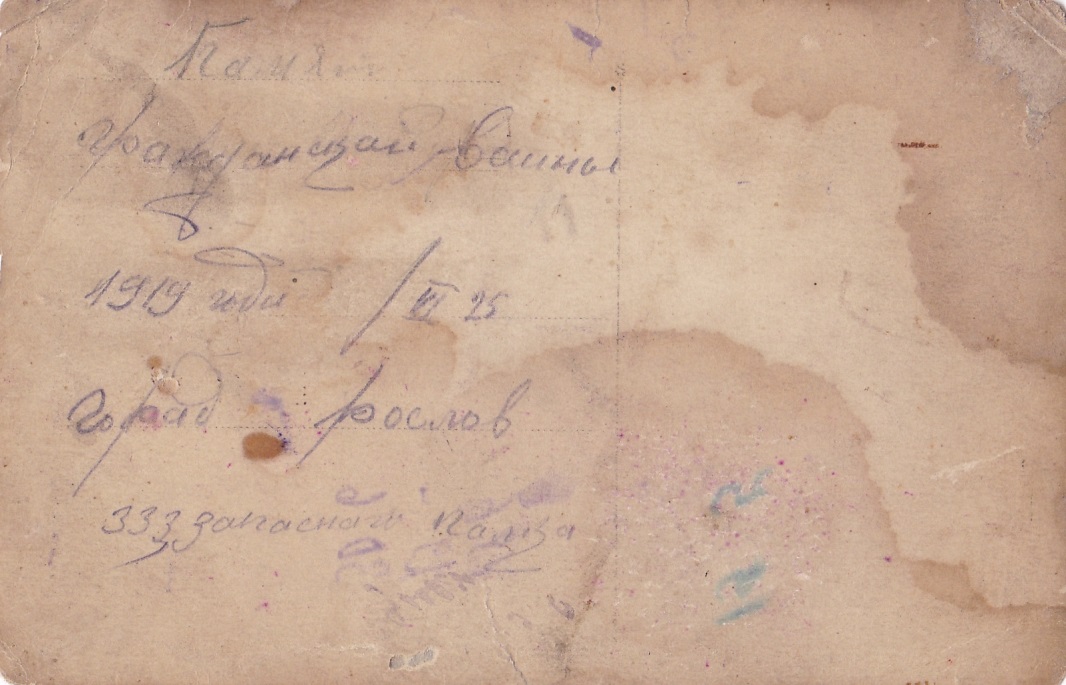 Памят
гражданской ваины
в
1919 годи / VI 25
Горад рослов
333 запаснаго палка